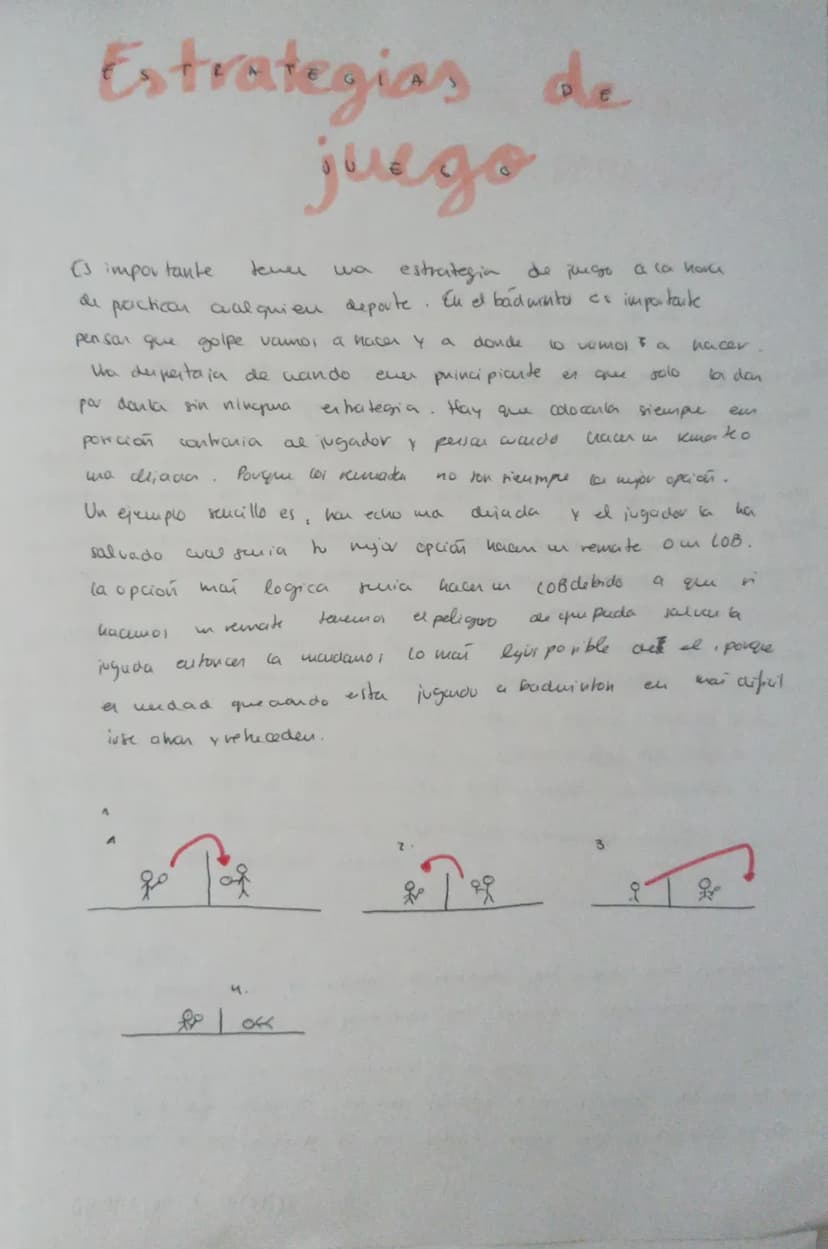 Estrategias de
ESTRATEGIAS DE
juego
JUEGO
Es importante tener una estrategia de juego a la hora
de practicar cualquier deporte. En el bádminto es importante
pensar que golpe vamos a hacer y a donde lo vamos a hacer.
Una desventaja de cuando eres principiante es que solo la dan
por darla sin ninguna estrategia. Hay que colocarla siempre en
posición contraria al jugador y pensar cuando hacer un remate o
una dejada. Porque los remates no son siempre la mejor opción.
Un ejemplo sencillo es, has echo una dejada y el jugador la ha
salvado cual seria tu mejor opción hacer un remate o un LOB.
La opción mas logica seria hacer un LOB debido a que si
hacemos un remate tenemos el peligro de que pueda salvar la
jugada entonces la mandamos lo mas lejos posible de el, porque
es verdad que cuando esta jugando a badminton es mas dificil
irse atras y retroceder.
1
1
2.
3
4.